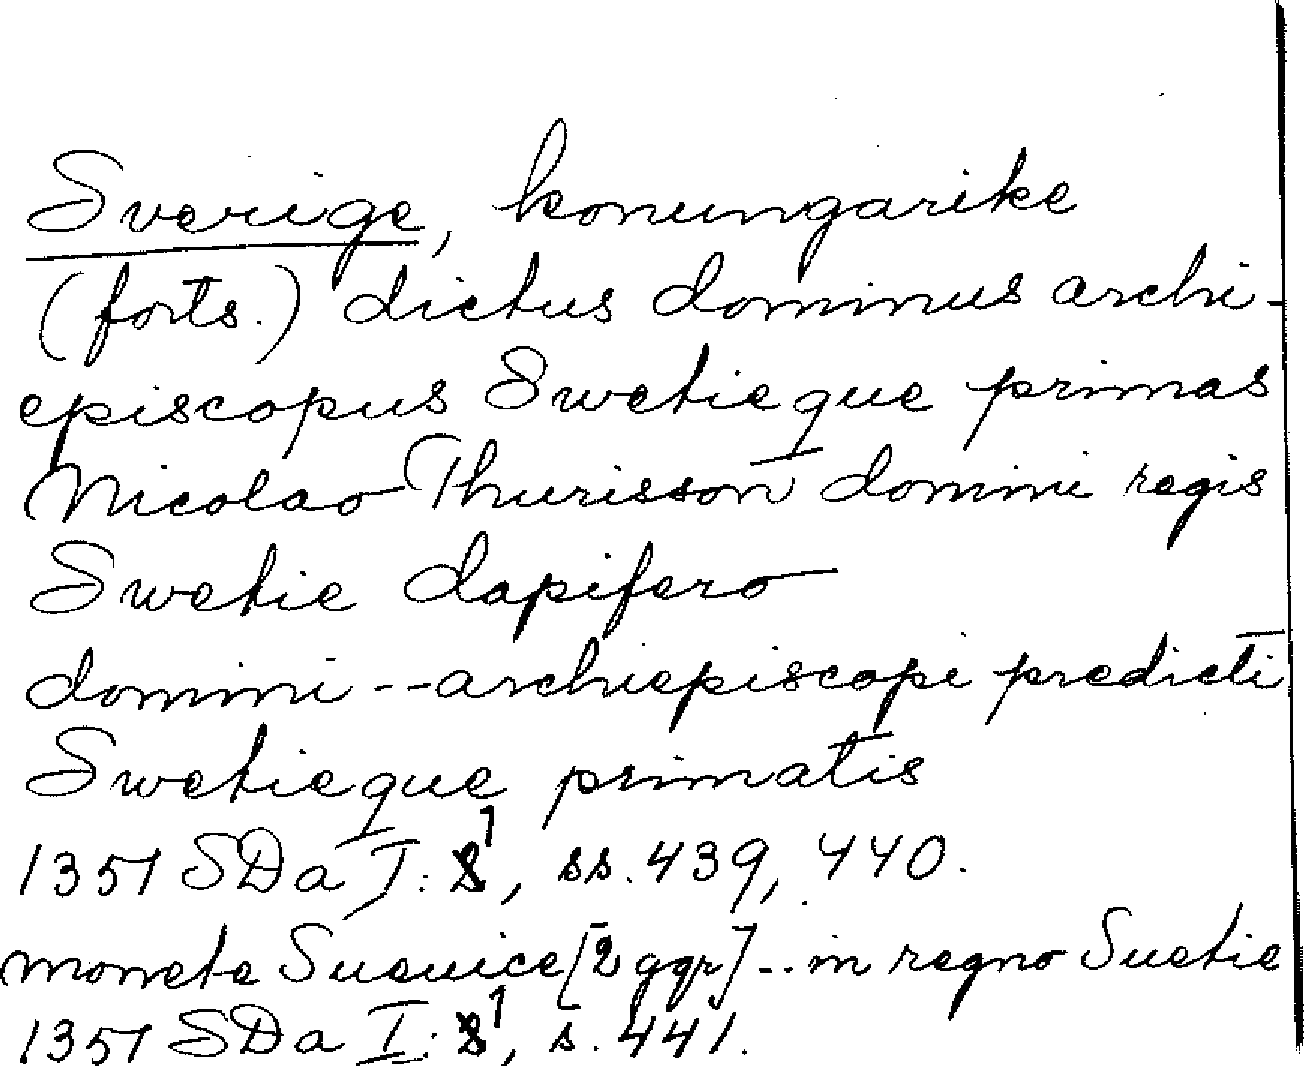 Sverige, konungarike
(forts.) dictus dominus archi-
episcopus Swetieque primas
Nicolao Thurisson domini regis
Swetie dapifero
domini -- archiepiscopi predicti
Swetieque primatis
1357 SDa I: 1, ss. 439, 440.
monete Sueuice [2 ggr] -- in regno Suetie
1357 SDa I: 1, s. 441.